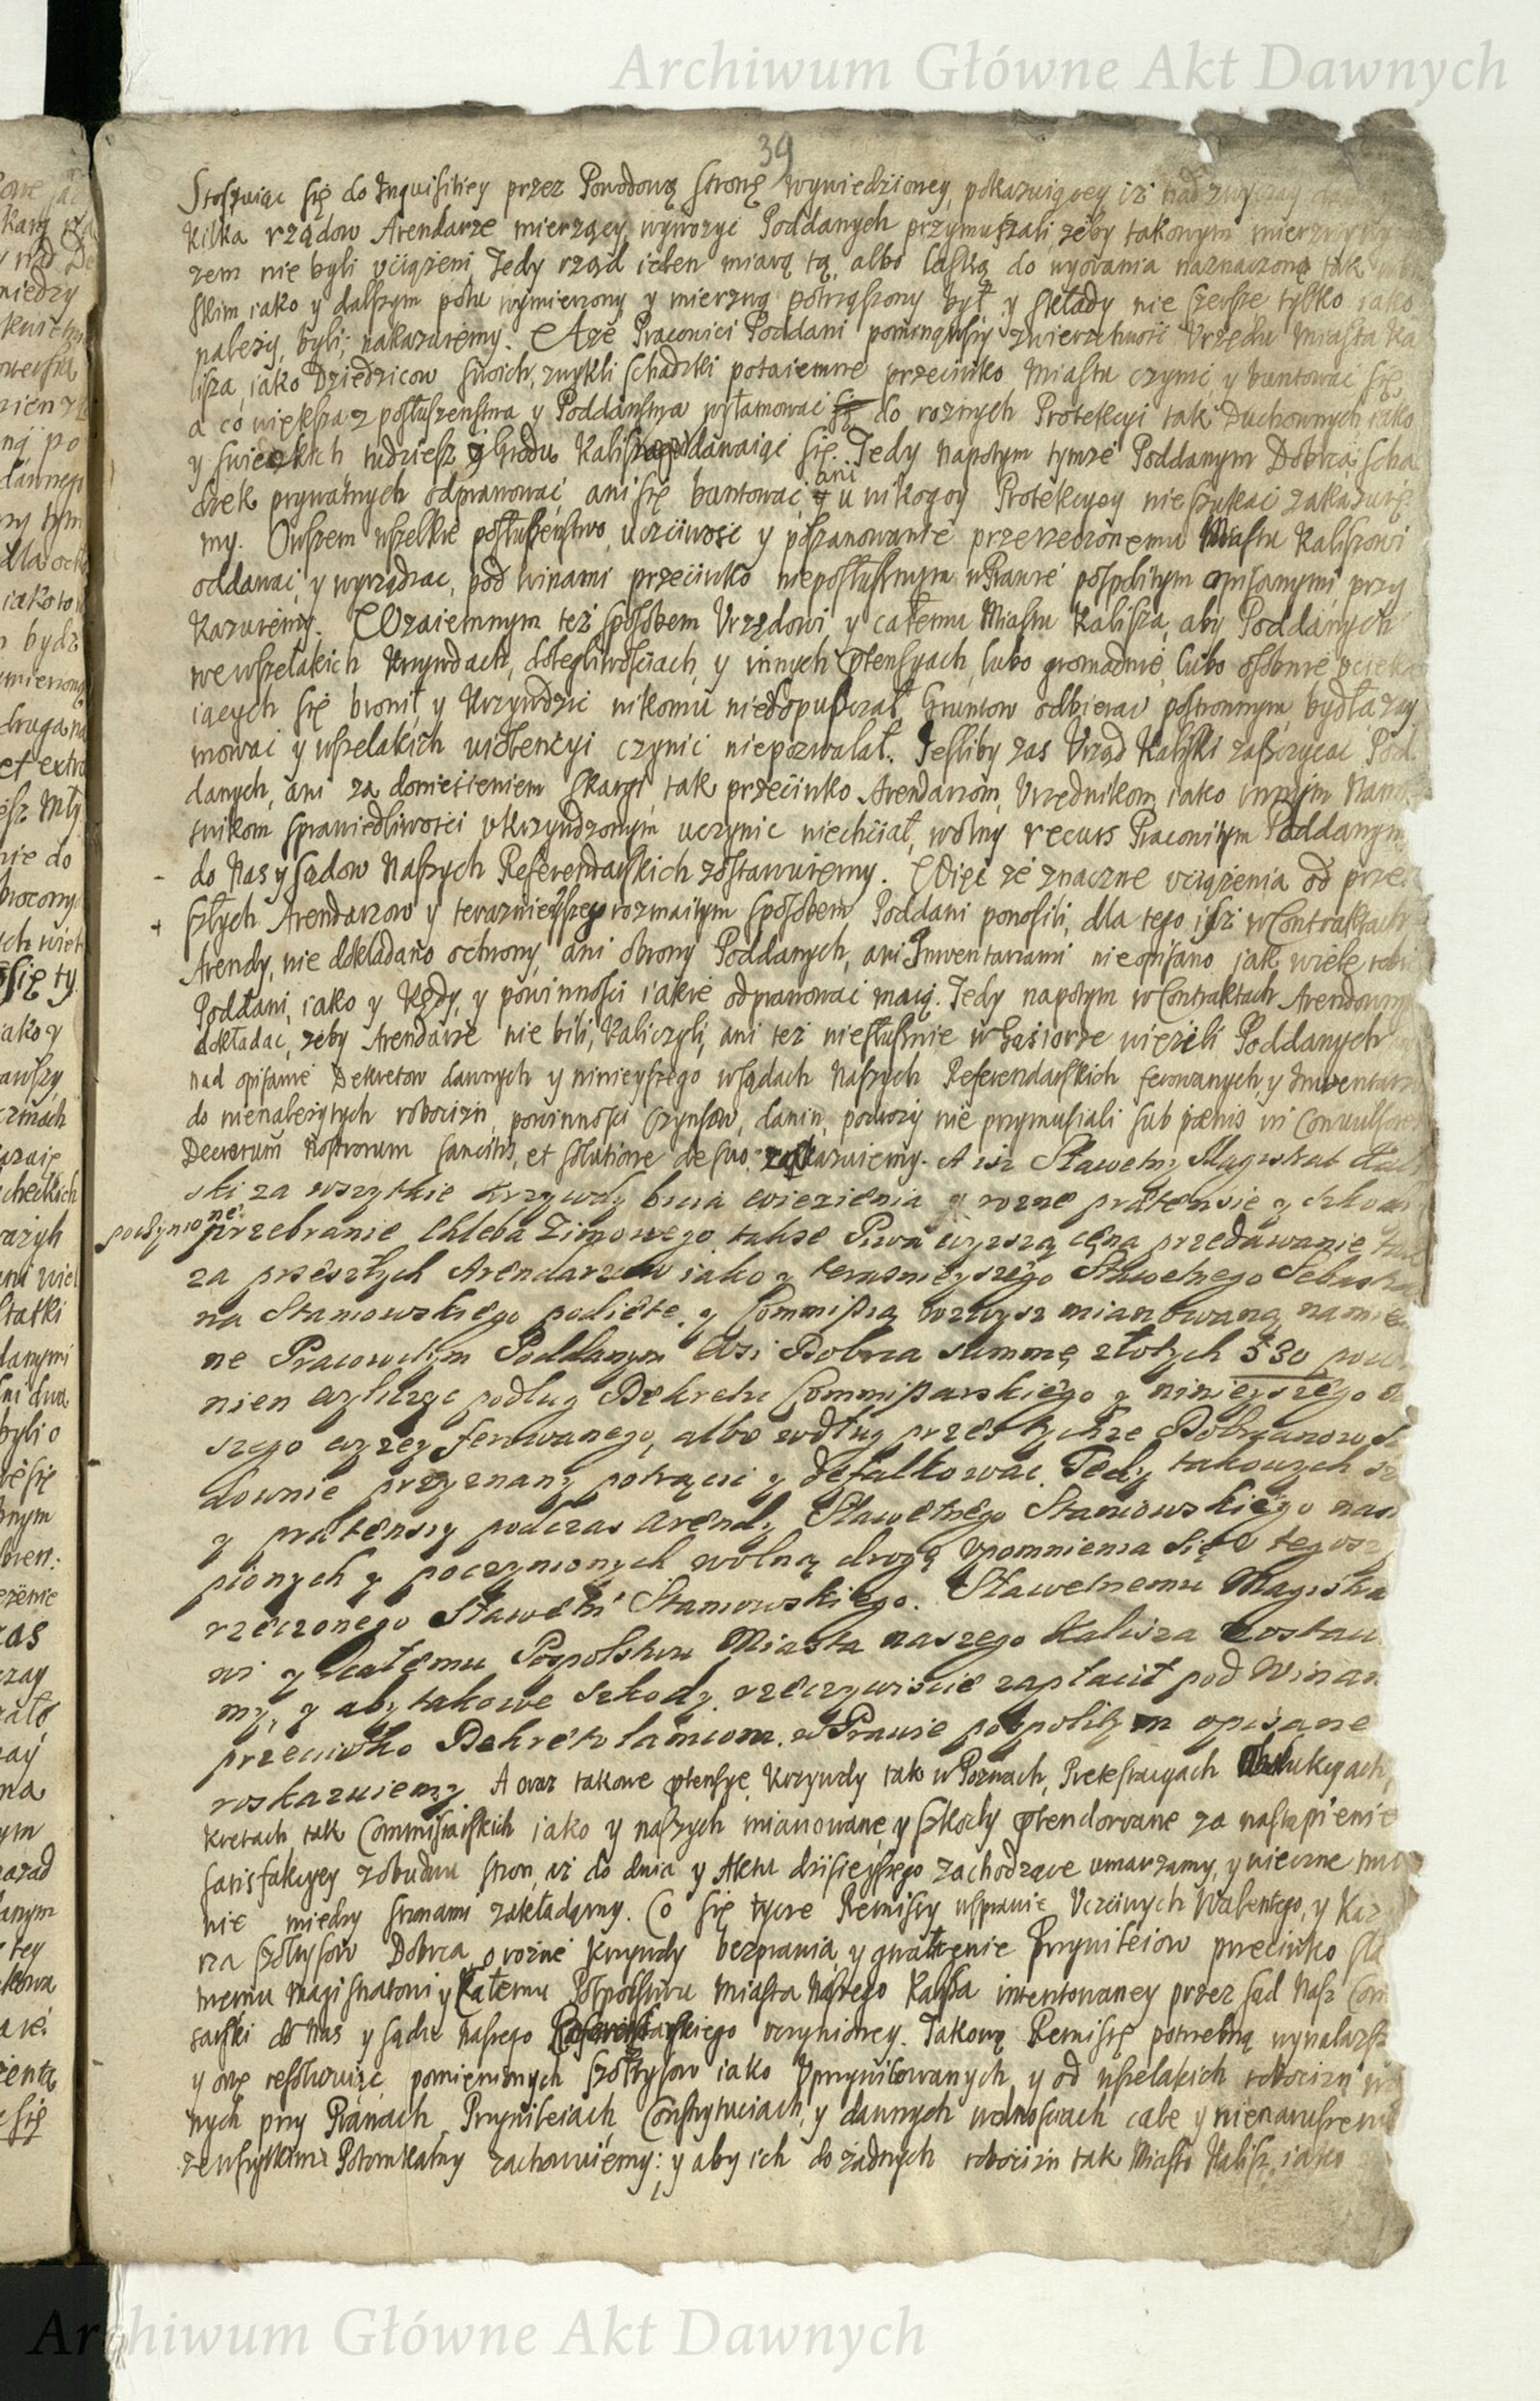 Archiwum Główne Akt Dawnych
39
Stosuiąc się do Inquisitiey przez Powodową stronę wywiedzioney, pokazuiącey iż nad zwyczay
kilka rządow Arendarze mierzący wyworzyć Poddanych przymuszali żeby takowym
zem nie byli uciążeni, Tedy rząd ieden miarą tą, albo laską do wyorania naznaczoną tak
skim iako y dalszym polu wymierzony, y mierzwą potrząszony był, y składy nie szersze tylko iako
należy, byli; nakazuiemy. A że Pracowici Poddani pominąwszy zwierzchność Urzędu Miasta Ka
lisza, iako Dziedzicow swoich, zwykli schadzki potaiemne przeciwko Miastu czynić, y buntować się,
a co większa z posłuszeństwa y Poddaństwa wyłamować do roznych Protekcyi tak Duchownych iako
y swieckich tudziesz Grodu Kalisz poddawaiąc się. Tedy napotym tymże Poddanym Dobrca scha
ani
dzek prywatnych odprawować, ani się buntować, u nikogoy Protekcyey nie szukać zakazuię
my. Owszem wszelkie posłuszeństwo, uczciwość y poszanowanie przerzeczonemu Miastu Kaliszowi
oddawać, y wyrządzać, pod winami przeciwko nieposłusznym w Prawie pospolitym opisanymi przy
kazuiemy. Wzaiemnym też sposobem Urzędowi y całemu Miastu Kalisza, aby Poddanych
we wszelakich krzywdach, dolegliwościach, y innych ptensyach, lubo gromadnie, lubo osobnie ucieka
iących się bronił, y krzywdzić nikomu niedopuszczał Gruntow odbierać postronnym, bydła zay
mować y wszelakich uiolencyi czynić niepozwalał. Jesliby zas Urząd Kaliski zaszczycać Pod
danych, ani za doniesieniem skargi tak przeciwko Arendarzom, Urzędnikom iako innym Namie
snikom sprawiedliwości ukrzywdzonym uczynić niechciał, wolny recurs Pracowitym Poddanym
do Nas y Sądow Naszych Referendarskich zostawuiemy. Więc że znaczne uciążenia od prze
szłych Arendarzow y teraznieyszego rozmaitym sposobem Poddani ponosili, dla tego isz w Contraktach
Arendy, nie dokładano ochrony, ani obrony Poddanych, ani Inwentarzami nieopisano jak wiele robić
Poddani, iako y kędy, y powinności iakie odprawować maią. Tedy napotym w Contraktach Arendowny
dokładać, żeby Arendarze nie bili, kaliczyli, ani też niesłusznie w Gąsiorze więzili Poddanych
nad opisanie Dekretow dawnych y ninieyszego w Sądach Naszych Referendarskich ferowanych, y Inwentarza
do nienależytych robocizn, powinności czynszow, danin, podwozy nie przymusiali sub pænis in Convulsores
Decretorum Nostrorum sancitis, et solutione de suo zakazuiemy. A isz Sławetny Magistrat Kali
ski za wszytkie krzywdy bicia więzienia y rozne prætensie y szkody
poczynione: przebranie Chleba Zimowego, takze Piwa wyzszą cęną przedawanie tak
za przeszłych Arendarzow iako y teraznieyszego Sławetnego Sebastya
na Staniowskiego podięte, y Commissią wzwysz mianowaną namie
ne Pracowitym Poddanym wsi Dobrca summę złotych 530 powi
nien wyliczyć podług Dekretu Commissarskiego y ninieyszego
szego wyzey ferowanego, albo według przes tychże Dobrzanow
downie przyznany potrącić y defalkować. Tedy takowych
y prætensiy podczas arendy Sławetnego Staniowskiego nas
pionych y poczynionych wolną drogę upomnienia się o tegosz
rzeczonego Sławetn Staniowskiego. Sławetnemu Magistra
wi y całemu Pospolstwu Miasta naszego Kalisza zostaw
my, y aby takowe szkody rzeczywiscie zapłacił pod Winam
przeciwko Dekretu łamiom w Prawie pospolitym opisane
roskazuiemy. A oraz takowe ptensye, krzywdy tak w Pozwach, Protestacyach Obdukcyach,
kretach tak Commissarskich iako y naszych mianowane, y szkody ptendowane za nastąpienie
satisfakcyey z obudwu stron, aż do dnia y Aktu dzisieyszego zachodzące umarzamy, y wieczne mil
nie miedzy stronami zakładamy. Co się tycze Remissy wsprawie Uczciwych Walentego, y Kaz
rza szołtysow Dobrca, o rożne krzywdy bezprawia, y gwałcenie Przywileiow przeciwko Sła
tnemu Magistratowi y całemu Pospolstwu Miasta Naszego Kalisza intentowaney przez Sąd Nasz Com
sarski do Nas y sądu Naszego Referendarskiego uczynioney. Takową Remissę potrzebną wynalazsz
y onę resolwuiąc pomienionych szołtysow iako Uprzywileiowanych, y od wszelakich robocizn wo
nych przy Prawach, Przywileiach, Constytuciach, y dawnych wolnościach całe y nienaruszenie
ze wszytkimi Potomkamy zachowuiemy: y aby ich do żadnych robocizn tak Miasto Kalisz, iako
Archiwum Główne Akt Dawnych